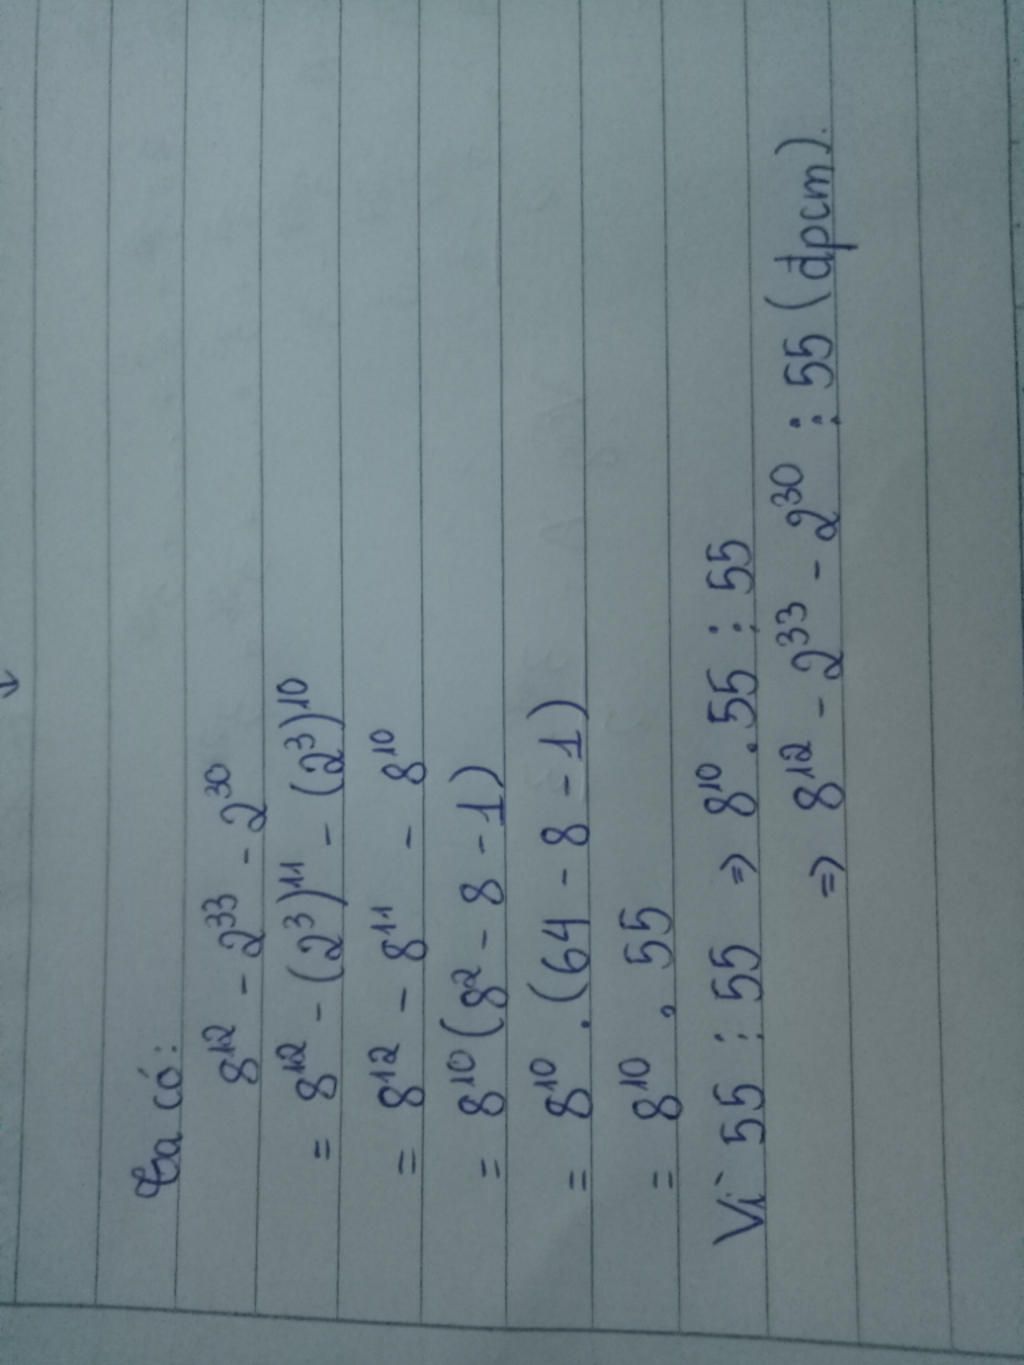 Ta có:
8¹² - 2³³ - 2³⁰
= 8¹² - (2³)¹¹ - (2³)¹⁰
= 8¹² - 8¹¹ - 8¹⁰
= 8¹⁰(8² - 8 - 1)
= 8¹⁰.(64 - 8 - 1)
= 8¹⁰ . 55
Vì 55 ⋮ 55 => 8¹⁰.55 ⋮ 55
=> 8¹² - 2³³ - 2³⁰ ⋮ 55 (đpcm).